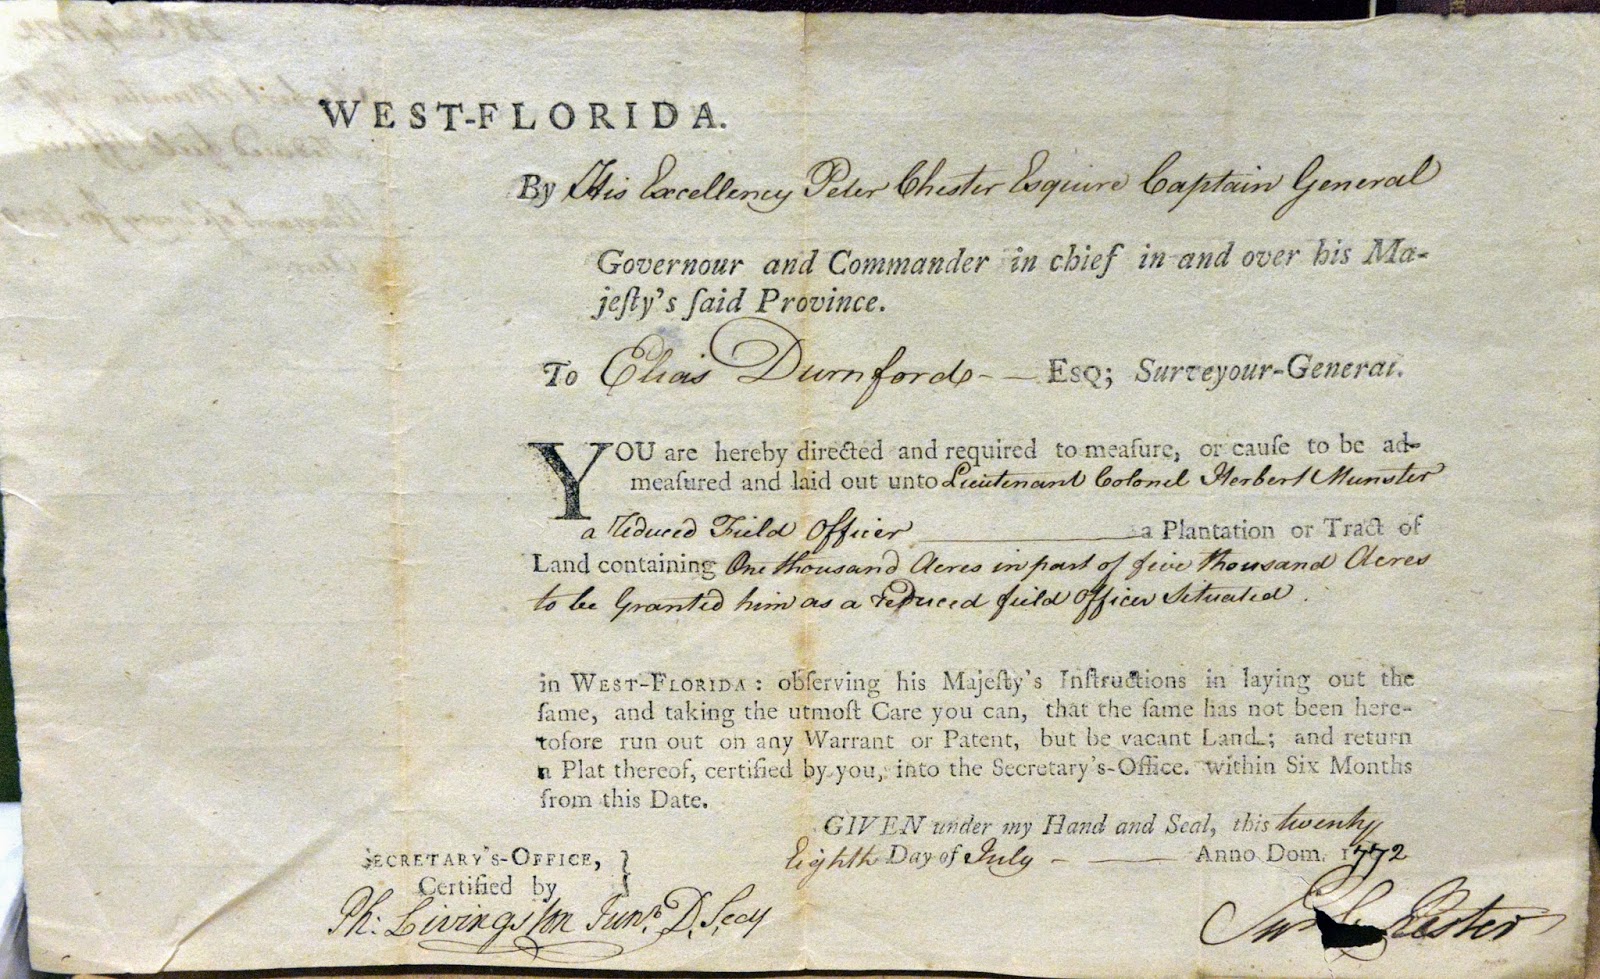 WEST-FLORIDA.
By His Excellency Peter Chester Esquire Captain General
Governour and Commander in chief in and over his Ma-
jeſty's ſaid Province.
To Elias Durnford - — ESQ; Surveyour-General.
YOU are hereby directed and required to meaſure, or cauſe to be ad-
meaſured and laid out unto Lieutenant Colonel Herbert Munster
a reduced Field Officer ——— a Plantation or Tract of
Land containing One thousand Acres in part of five thousand Acres
to be Granted him as a reduced field Officer Situated .
in WEST-FLORIDA: obſerving his Majeſty's Inſtructions in laying out the
ſame, and taking the utmoſt Care you can, that the ſame has not been here-
tofore run out on any Warrant or Patent, but be vacant Land; and return
a Plat thereof, certified by you, into the Secretary's-Office. within Six Months
from this Date.
GIVEN under my Hand and Seal, this twenty
Eighth Day of July - —— Anno Dom. 1772
SECRETARY'S-OFFICE, }
Certified by
Ph: Livingston Junr. D. Secy
Chester